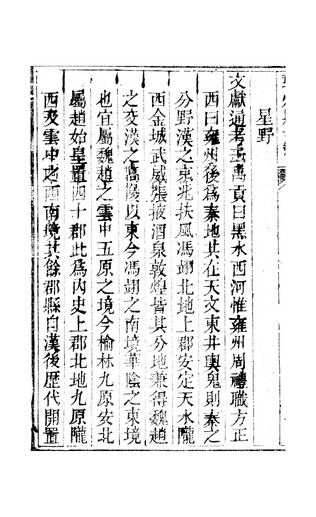 星野
文獻通考云禹貢曰黑水西河惟雍州周禮職方正
西曰雍州後為秦地其在天文東井輿鬼則秦之
分野漢之京兆扶風馮翊北地上郡安定天水隴
西金城武威張掖酒泉敦煌皆其分地兼得魏趙
之交漢之高陵以東今馮翊之南境華陰之東境
也宜屬魏趙之雲中五原之境今榆林九原安北
屬趙始皇置四十郡此為內史上郡北地九原隴
西及雲中之西南境其餘郡縣自漢後歷代開置